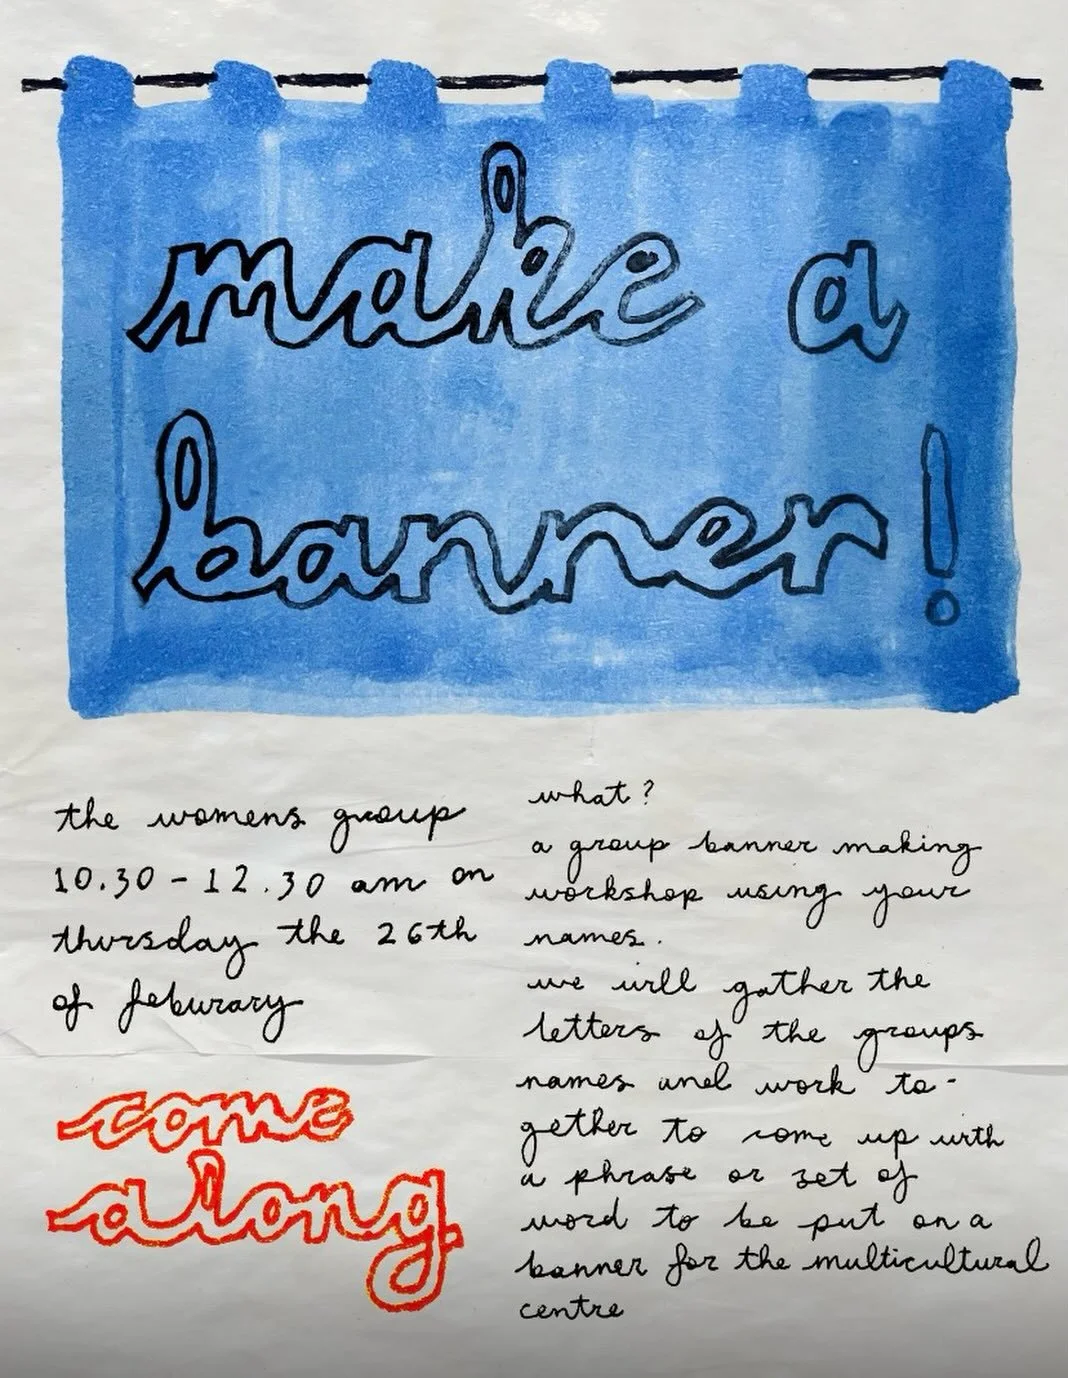 make a
banner!
the womens group
10.30 - 12.30 am on
thursday the 26th
of feburary
come
along.
what?
a group banner making
workshop using your
names.
we will gather the
letters of the groups
names and work to-
gether to come up with
a phrase or set of
word to be put on a
banner for the multicultural
centre